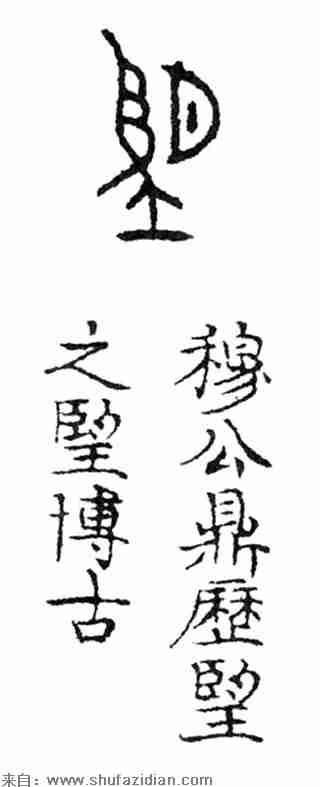 朢
穆公鼎歷朢
之朢博古
来自：www.shufazidian.com